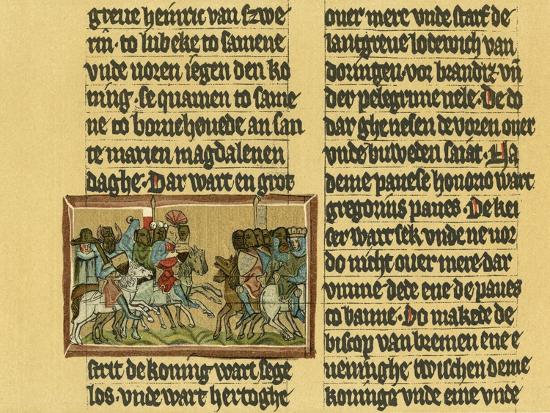 greue heinric van szwe
rin · to lubeke to samene
vnde uoren iegen den ko
ning · se quamen to same
ne to bornehouede an san
te marien magdalenen
daghe · Dar wart en grot
strit de koning wart sege
los · vnde wart hertoghe
ouer mere vnde starf de
lantgreue lodewich van
doringen · vor brandiz · vñ
der pelegrime uele · De do
dar ghenesen de voren ouer
vnde bisweden sarat · Na
deme pauese honorio wart
gregorius paues · De kei
ser wart sek vnde ne uor
do nicht ouer mere dar
vmme dede ene de paues
to banne · Do makede de
biscop van bremen ene e
ueninghe twischen deme
koninga vnde eine vnde